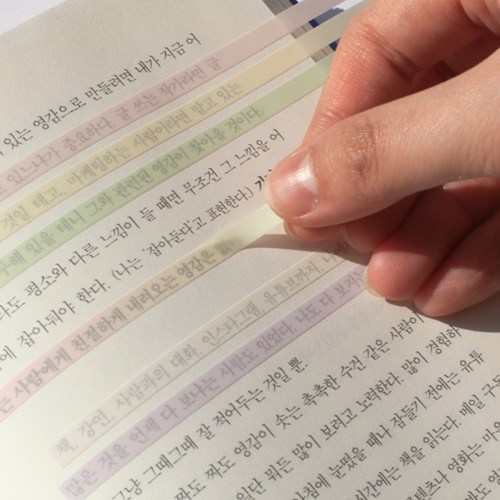 있는 영감으로 만들려면 내가 지금 어
있느냐가 중요하다. 글 쓰는 작가라면 글
것일 테고, 마케팅하는 사람이라면 맡고 있는
있을 테니 그와 관련된 영감이 찾아올 것이다.
평소와 다른 느낌이 들 때면 무조건 그 느낌을 어
에 잡아둬야 한다. (나는 '잡아둔다'고 표현한다.)
는 사람에게 친절하게 내려오는 영감은
책, 강연, 사람과의 대화, 인스타그램, 유튜브까지,
많은 것을 언제 다 보냐는 사람도 있었다. 나도 다 보지는
그냥 그때그때 잘 적어두는 것일 뿐.
짜도 짜도 영감이 솟는 촉촉한 수건 같은 사람이
일단 뭐든 많이 보려고 노력한다. 많이 경험하
눈떴을 때나 잠들기 전에는 유튜
시간에는 책을 읽는다. 메일 구독
영화는 마음